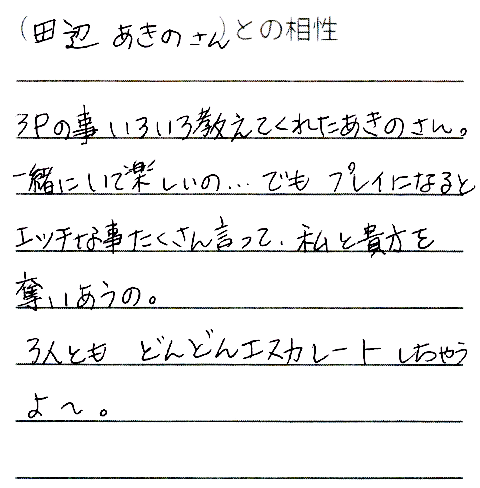 (田辺 あきのさん)との相性
3Pの事いろいろ教えてくれたあきのさん。
一緒にいて楽しいの…でも プレイになると
エッチな事たくさん言って、私と貴方を
奪いあうの。
3人とも どんどんエスカレートしちゃう
よ〜。